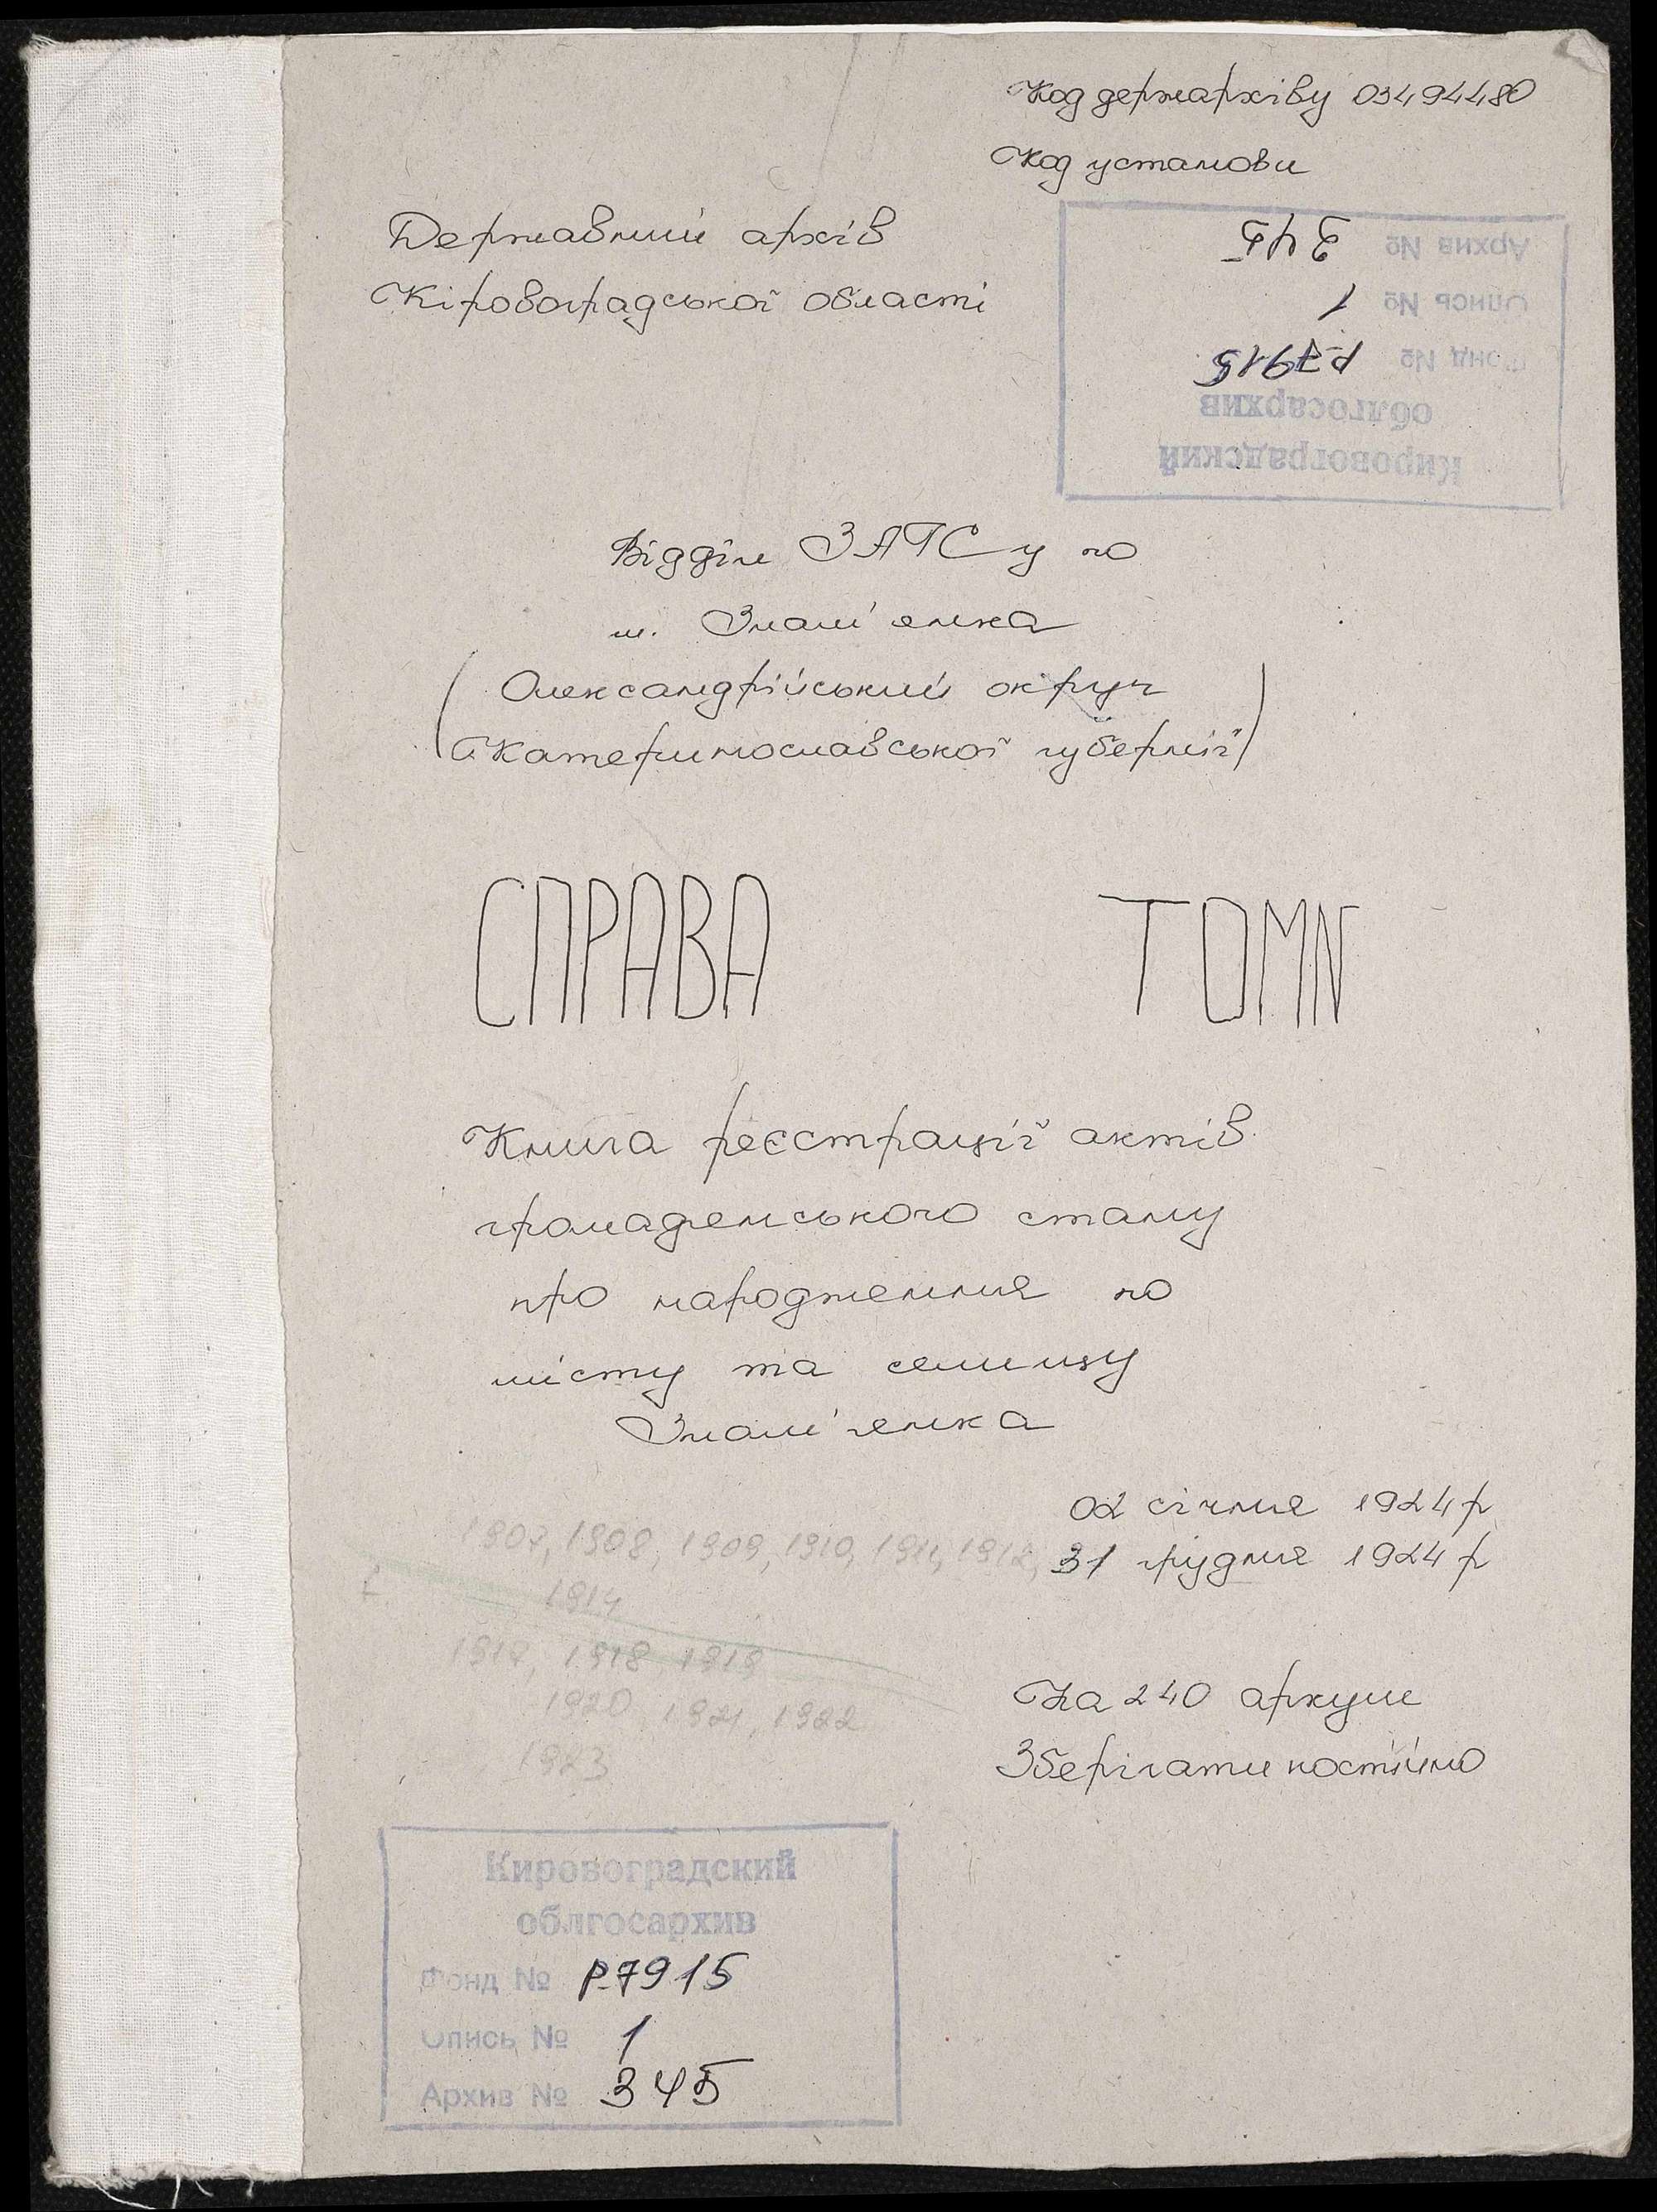 Код держархіву 03494480
Код установи
Державний архів
Кіровоградської області
Архив № 345
Опись № 1
Фонд № Р-7915
облгосархив
Кировоградский
Відділ ЗАГСу по
м. Знам'янка
(Олександрійський округ
Катеринославської губернії)
СПРАВА ТОМ N
Книга реєстрації актів
громадянського стану
про народження по
місту та селищу
Знам'янка
02 січня 1924 р
1907, 1908, 1909, 1910, 1911, 1912, 31 грудня 1924 р
1914
1917, 1918, 1919
1920, 1921, 1922
1923
На 240 аркуш
Зберігати постійно
Кировоградский
облгосархив
Фонд № Р-7915
Опись № 1
Архив № 345